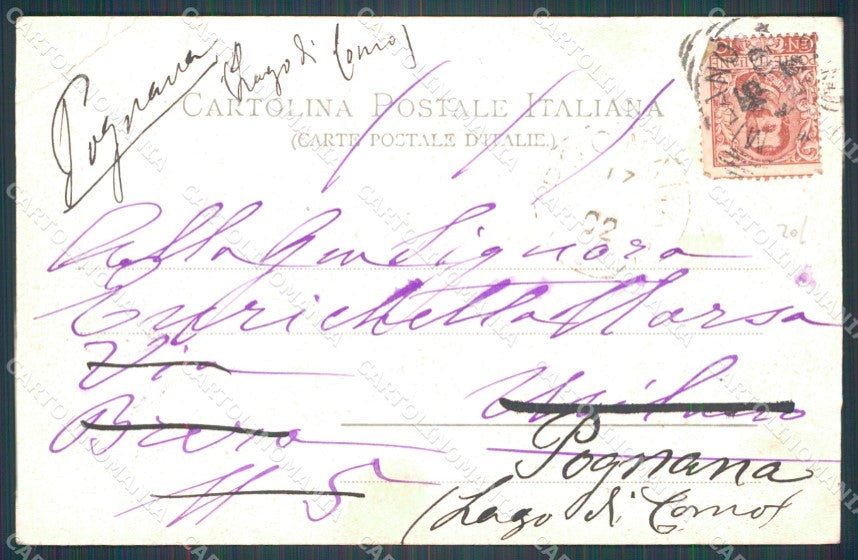 Pognana
(Lago di Como)
CARTOLINA POSTALE ITALIANA
(CARTE POSTALE D'ITALIE.)
MILANO
17
02
20/
Alla Signora
Enrichetta Marsa
Via
Brera
N 5
Milano
Pognana
(Lago di Como)
CARTOLINOMANIA